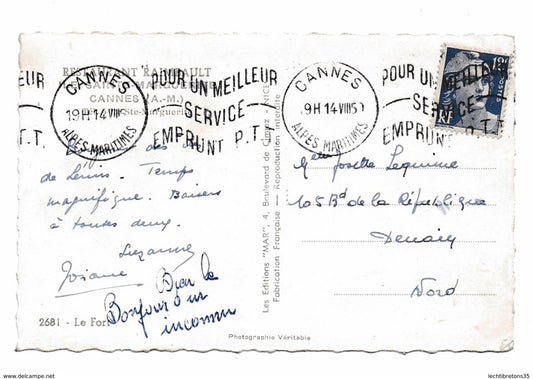 RESTAURANT RAMBAULT
CANNES (A.-M.)
CANNES
19H 14 VIII
ALPES MARITIMES
POUR UN MEILLEUR
SERVICE
EMPRUNT P.T.T.
CANNES
9H 14 VIII 50
ALPES MARITIMES
POUR UN MEILLEUR
SERVICE
EMPRUNT P.T.T.
de Lérins. Temps
magnifique. Baisers
à toutes deux.
Suzanne
Josiane
Bien le
Bonjour d'un
inconnu
2681 - Le Fort
Photographie Véritable
Les Editions "MAR", 4, Boulevard de Cimiez - NICE
Fabrication Française - Reproduction Interdite
Josette Lequime
105 Bd de la République
Denain
Nord
www.delcampe.net
lechtibretons35